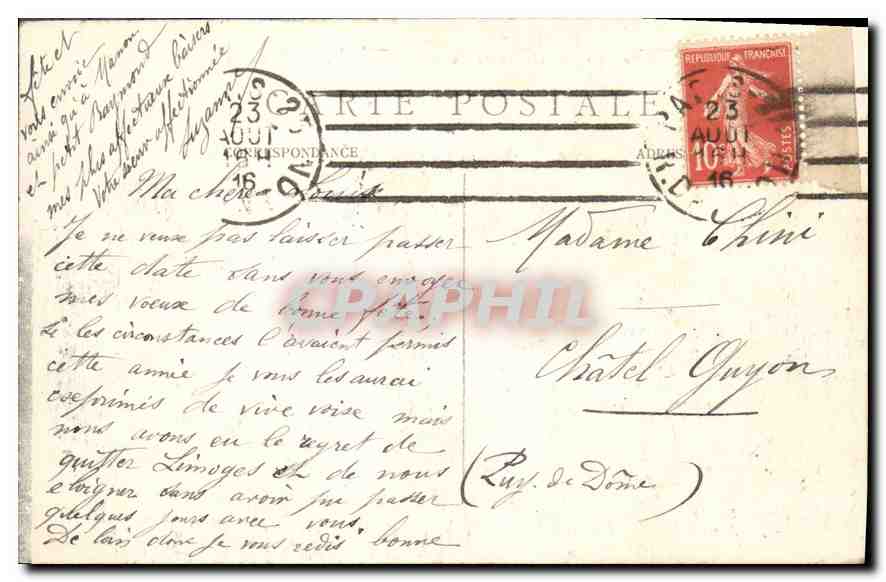 CARTE POSTALE
CORRESPONDANCE
Ma chère Louise
Je ne veux pas laisser passer
cette date sans vous envoyer
mes voeux de bonne fête.
Si les circonstances l'avaient permis
cette année je vous les aurai
exprimés de vive voise mais
nous avons eu le regret de
quitter Limoges et de nous
eloigner sans avoir pu passer
quelques jours avec vous.
De loin donc je vous redis bonne
fête et
vous envoie
ainsi qu'à Manon
et petit Raymond
mes plus affectueux baisers
Votre soeur affectionnée
Suzanne
23
AOUT
16
REPUBLIQUE FRANÇAISE
10c
POSTES
23
AOUT
16
Madame Chini
Châtel-Guyon
(Puy. de Dôme)
CPAPHIL